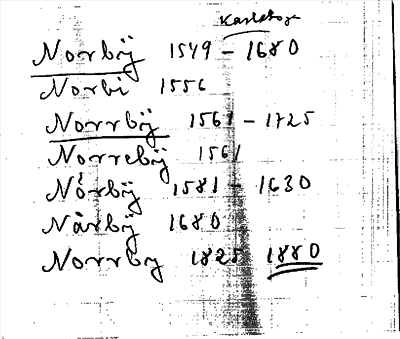 Norbÿ 1549 - 1680
Norbi 1556
Norrbÿ 1561 - 1725
Norrebÿ 1561
Nörbÿ 1581 - 1630
Nårbÿ 1680
Norrby 1825 1880